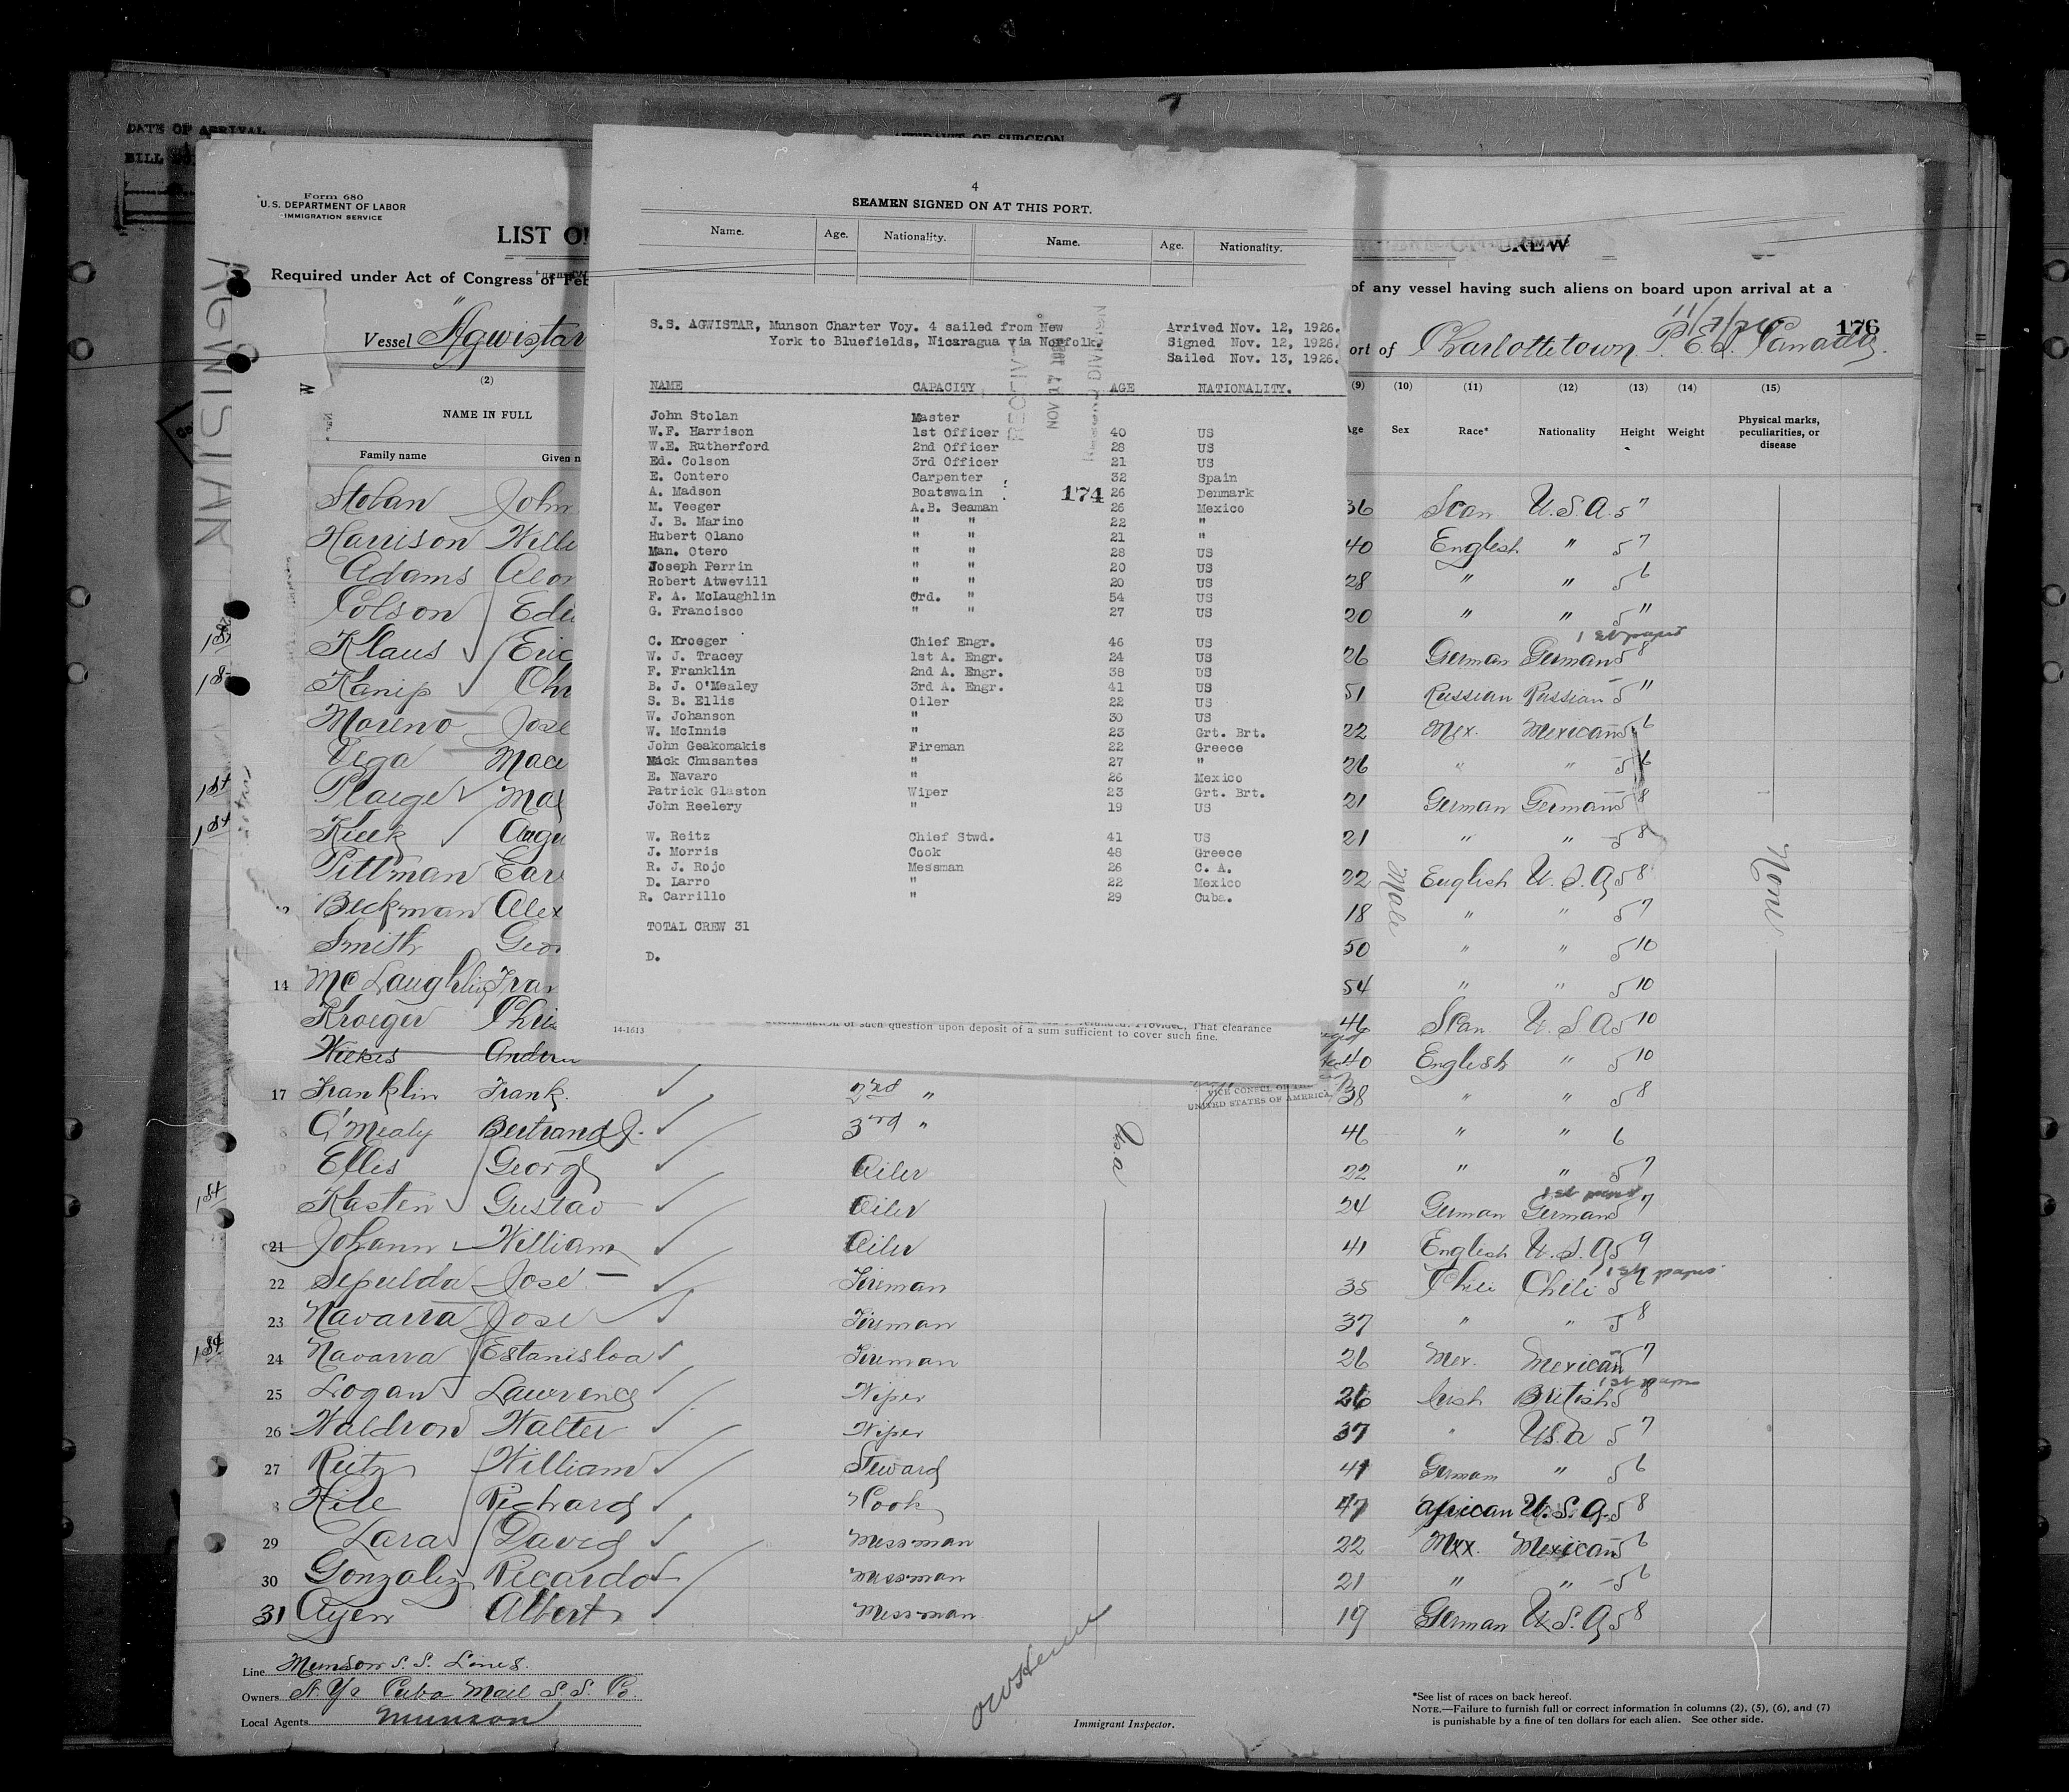 DATE OF ARRIVAL
AFFIDAVIT OF SURGEON
Form 680
U.S. DEPARTMENT OF LABOR
IMMIGRATION SERVICE
LIST O
CREW
Required under Act of Congress of Feb
of any vessel having such aliens on board upon arrival at a
AGWISTAR
Vessel "Agwistar
ort of Charlottetown P. E. I. Canada.
176
(2)
NAME IN FULL
Family name Given n
(9) (10) (11) (12) (13) (14) (15)
Age Sex Race* Nationality Height Weight Physical marks, peculiarities, or disease
4
SEAMEN SIGNED ON AT THIS PORT.
Name. Age. Nationality. Name. Age. Nationality.
S.S. AGWISTAR, Munson Charter Voy. 4 sailed from New Arrived Nov. 12, 1926.
York to Bluefields, Nicaragua via Norfolk. Signed Nov. 12, 1926.
Sailed Nov. 13, 1926.
NAME CAPACITY AGE NATIONALITY.
John Stolan Master
W.F. Harrison 1st Officer 40 US
W.E. Rutherford 2nd Officer 28 US
Ed. Colson 3rd Officer 21 US
E. Contero Carpenter 32 Spain
A. Madson Boatswain 174 26 Denmark
M. Veeger A.B. Seaman 26 Mexico
J. B. Marino " " 22 "
Hubert Olano " " 21 "
Man. Otero " " 28 US
Joseph Perrin " " 20 US
Robert Atwevill " " 20 US
F. A. McLaughlin Ord. " 54 US
G. Francisco " " 27 US
C. Kroeger Chief Engr. 46 US
W. J. Tracey 1st A. Engr. 24 US
F. Franklin 2nd A. Engr. 38 US
B. J. O'Mealey 3rd A. Engr. 41 US
S. B. Ellis Oiler 22 US
W. Johanson " 30 US
W. McInnis " 23 Grt. Brt.
John Geakomakis Fireman 22 Greece
Mick Chusantes " 27 "
E. Navaro " 26 Mexico
Patrick Glaston Wiper 23 Grt. Brt.
John Reelery " 19 US
W. Reitz Chief Stwd. 41 US
J. Morris Cook 48 Greece
R. J. Rojo Messman 26 C. A.
D. Larro " 22 Mexico
R. Carrillo " 29 Cuba.
TOTAL CREW 31
D.
14-1613
of such question upon deposit of a sum sufficient to cover such fine. That clearance
VICE CONSUL OF THE
UNITED STATES OF AMERICA
Stolan John 36 Scan U.S.A. 5 7
Harrison Willi 40 English " 5 7
Adams Alon 28 " " 5 6
Colson Edw 20 " " 5 11
1st Klaus Eric 26 German German 5 8 1st papers
Kanip Chr 51 Russian Russian 5 11
Moreno Jose 22 Mex. Mexican 5 6
Vega Mace 26 " " 5 6
1st Plaeger Max 21 German German 5 8
1st Kieck Augu 21 " " 5 8
Pittman Ear 22 English U.S.A 5 8
Beckman Alex 18 " " 5 7
Smith Geor 50 " " 5 10
14 McLaughlin Fran 54 " " 5 10
Kroeger Chris 46 Scan. U.S.A 5 10
Wickes Andrew 40 English " 5 10
17 Franklin Frank. 2nd " 38 " " 5 8
O'Mealy Bertrand J. 3rd " 46 " " 6
Ellis George Oiler 22 " " 5 7
1st Kasten Gustav Oiler 24 German German 5 7 1st papers
21 Johann William Oiler 41 English U.S.A 5 9
22 Sepulda Jose Fireman 35 Chili Chili 5 6 1st papers
23 Navarra Jose Fireman 37 " " 5 8
1st 24 Navarra Estanisloa Fireman 26 Mex. Mexican 5 7
25 Logan Lawrence Wiper 26 Irish British 5 8 1st papers
26 Waldron Walter Wiper 37 " U.S.A 5 7
27 Reitz William Steward 41 German " 5 6
Hill Richard Cook 47 African U.S.A. 5 8
29 Lara David Messman 22 Mex. Mexican 5 6
30 Gonzalez Ricardo Messman 21 " " 5 6
31 Ayen Albert Messman 19 German U.S.A 5 8
Male
None
U.S.A
Line Munson S.S. Lines.
Owners N. Y. Cuba Mail S.S. Co.
Local Agents Munson
Immigrant Inspector.
*See list of races on back hereof.
NOTE.—Failure to furnish full or correct information in columns (2), (5), (6), and (7)
is punishable by a fine of ten dollars for each alien. See other side.